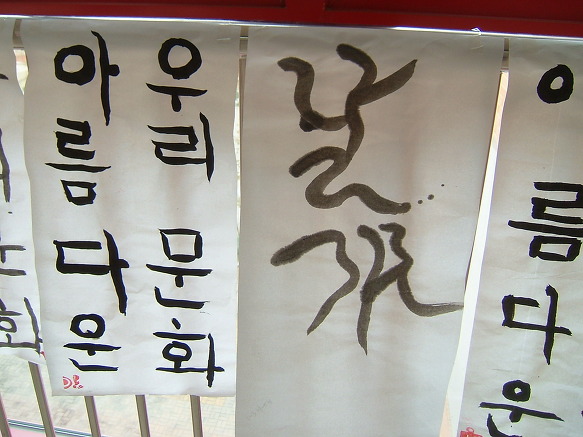 아름다운
우리 문화
날개
아름다운